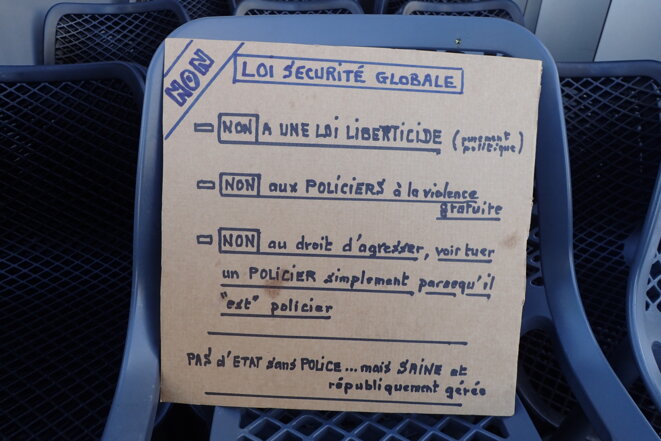 NON
LOI SECURITÉ GLOBALE
NON A UNE LOI LIBERTICIDE (purement politique)
NON aux POLICIERS à la violence
gratuite
NON au droit d'agresser, voir tuer
un POLICIER simplement parsequ'il
"est" policier
PAS d'ETAT sans POLICE... mais SAINE et
républiquement gérée